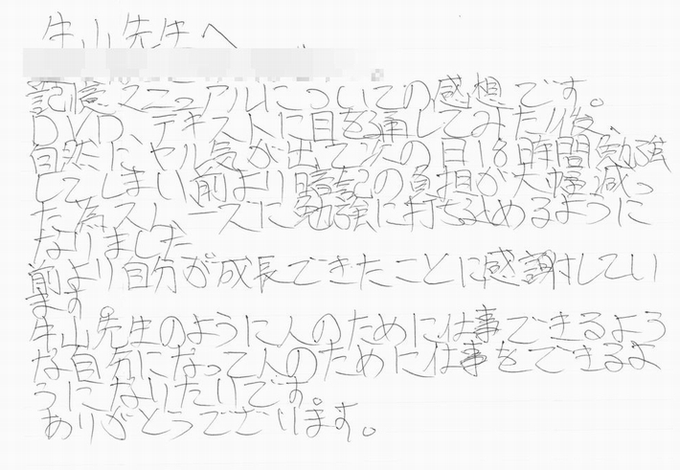 牛山先生へ
記憶マニュアルについての感想です。
DVD、テキストに目を通してみた後、
自然にヤル気が出て次の日は時間勉強
してしまい前より暗記の負担が大幅減っ
た為スムーズに勉強に打ち込めるように
なりました
前より自分が成長できたことに感謝してい
ます
牛山先生のように人のために仕事できるよう
な自分になって人のために仕事をできるよ
うになりたいです。
ありがとうございます。